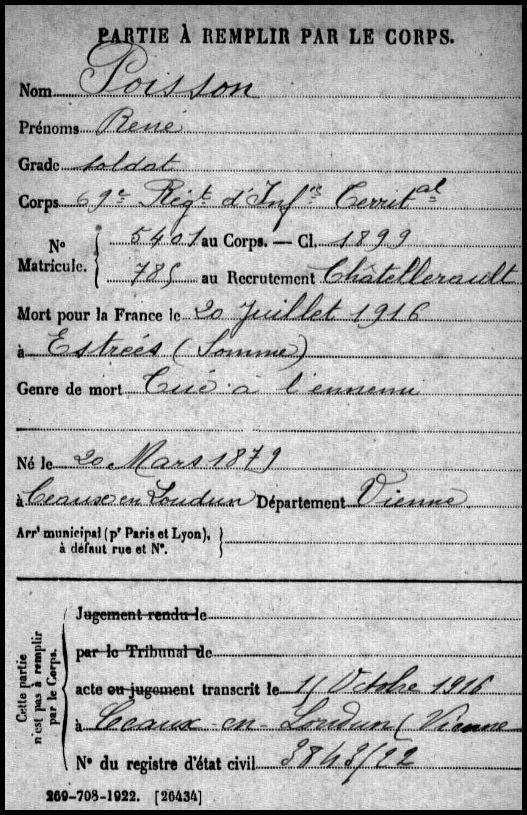 PARTIE À REMPLIR PAR LE CORPS.
Nom Poisson
Prénoms René
Grade soldat
Corps 69e Régt d'Infie Territal
No Matricule. 5401 au Corps. — Cl. 1899
785 au Recrutement Châtellerault
Mort pour la France le 20 Juillet 1916
à Estrées (Somme)
Genre de mort Tué à l'ennemi
Né le 20 Mars 1879
à Ceaux en Loudun Département Vienne
Arrt municipal (pr Paris et Lyon),
à défaut rue et No.
Cette partie n'est pas à remplir par le Corps.
Jugement rendu le
par le Tribunal de
acte ou jugement transcrit le 11 Octobre 1916
à Ceaux-en-Loudun (Vienne
No du registre d'état civil 3843/22
269-708-1922. [26434]